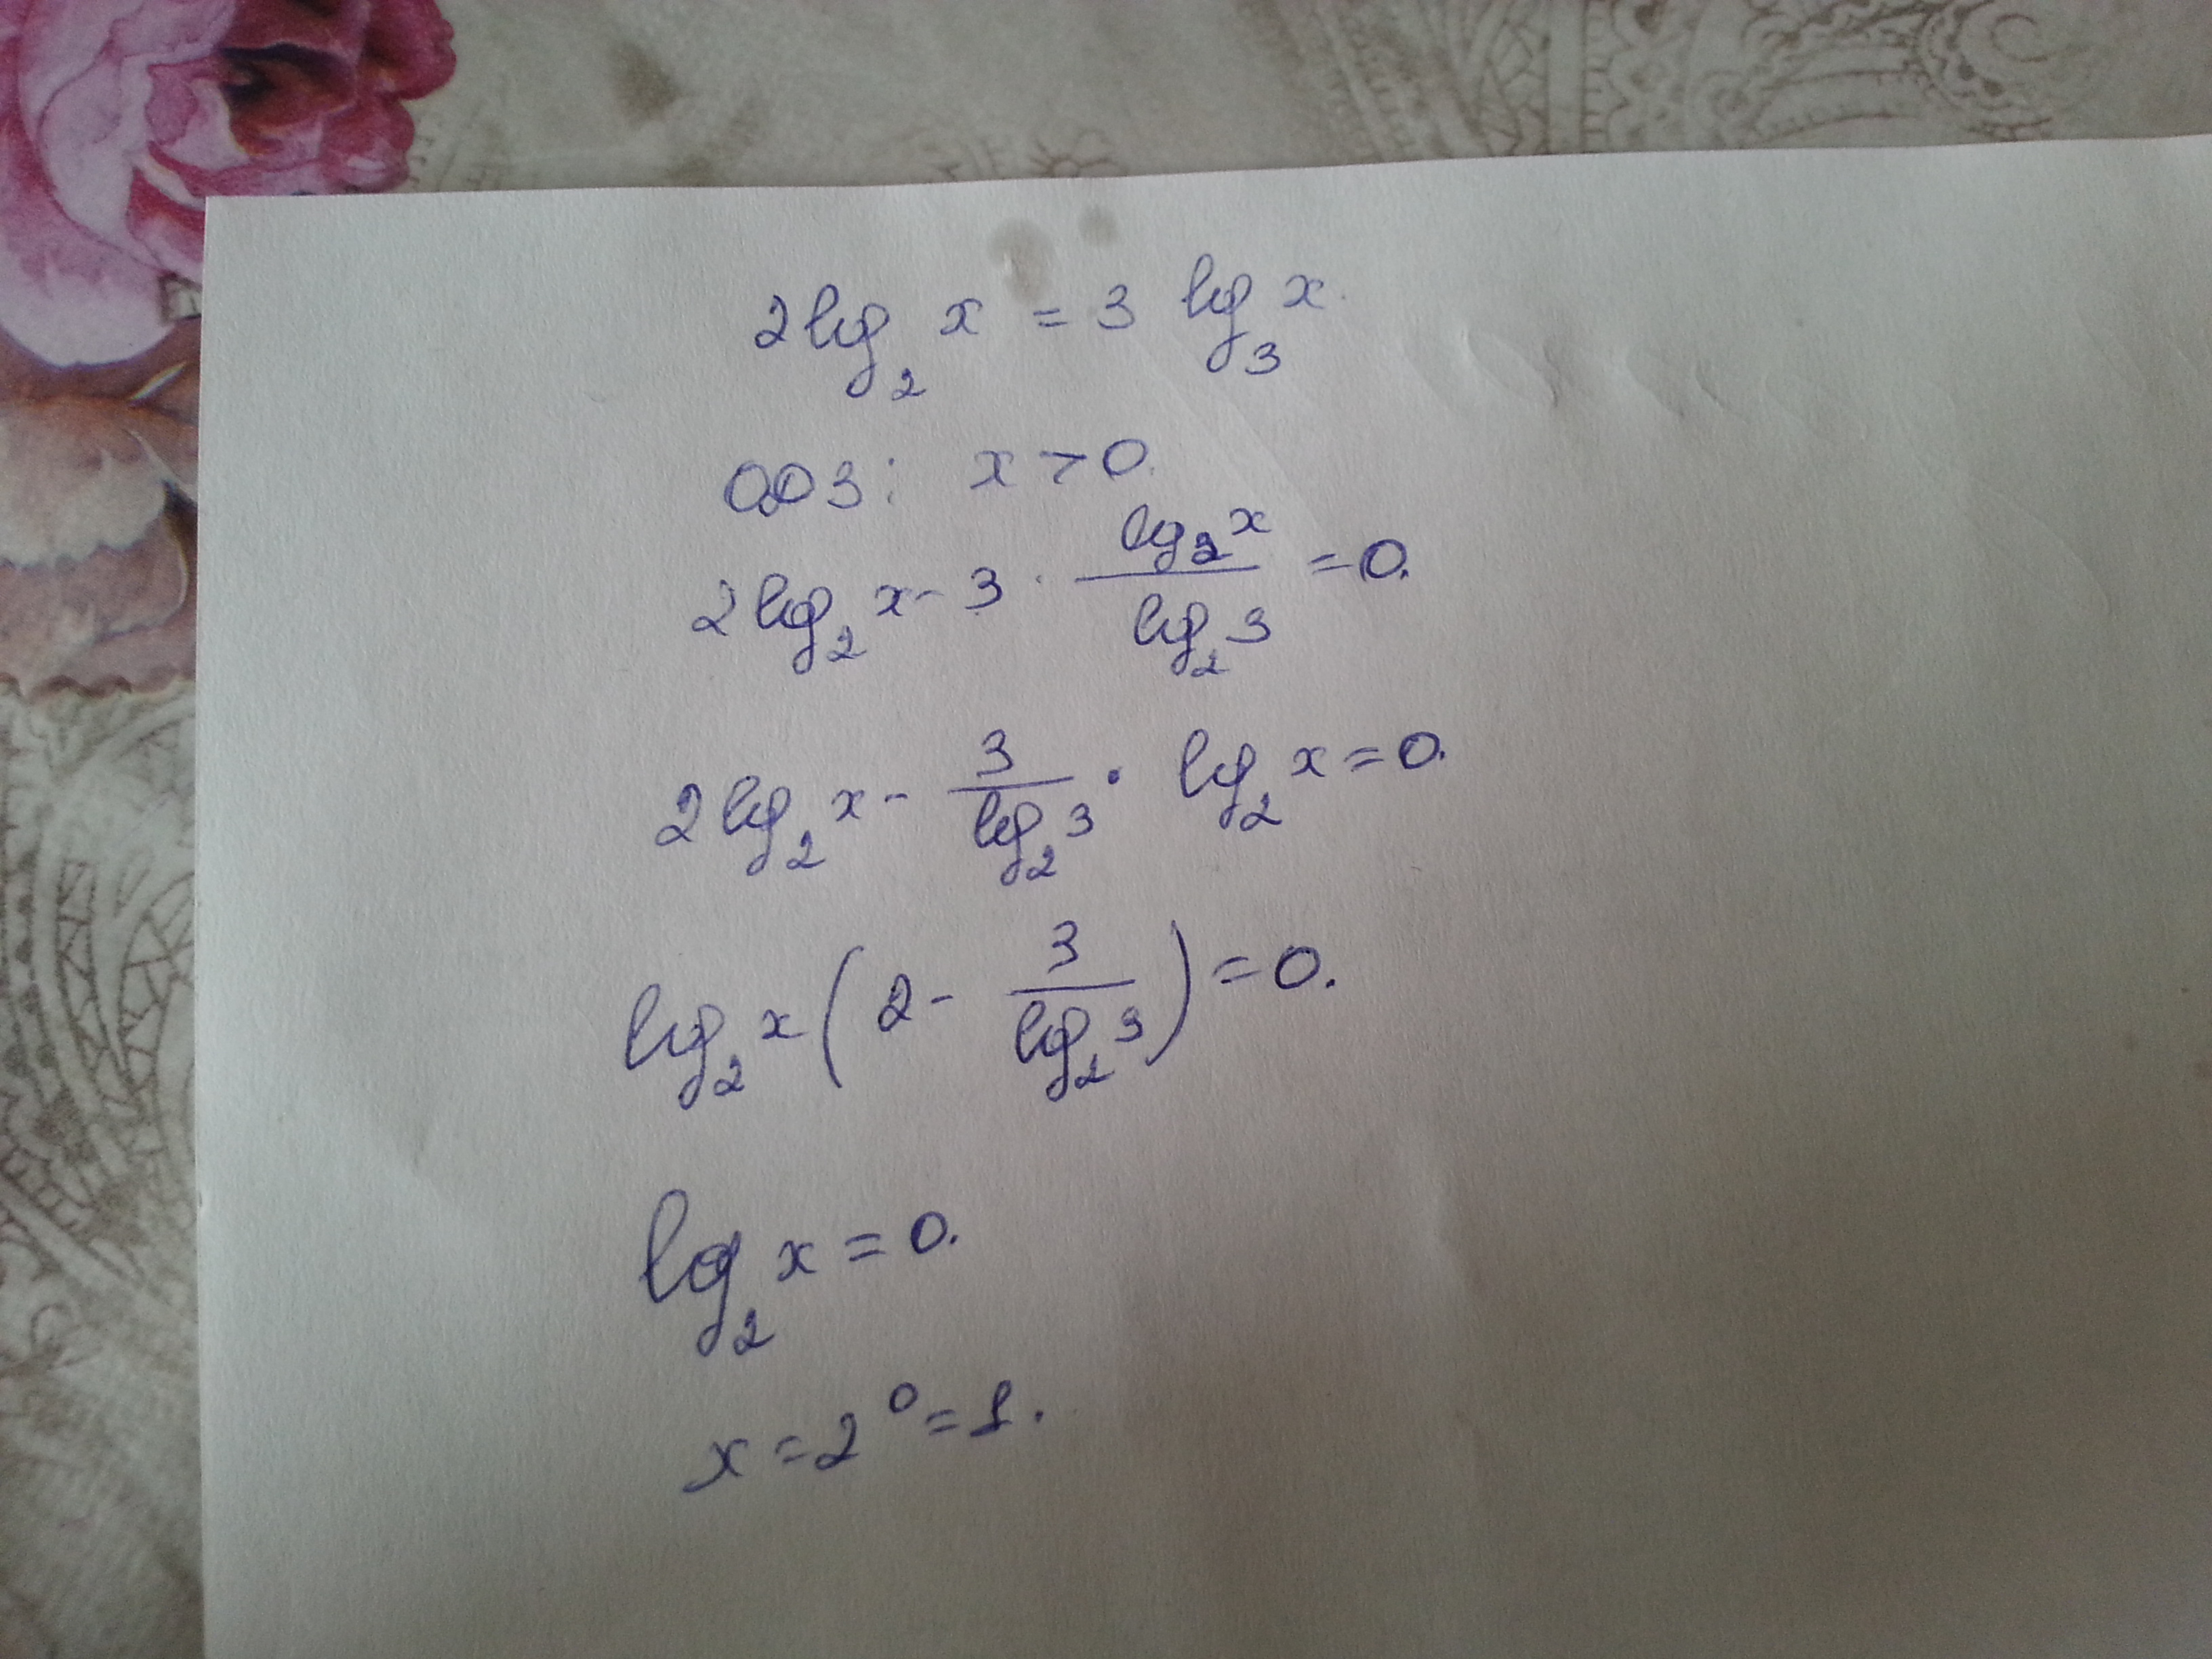 2log₂ x = 3 log₃ x.
ОДЗ: x > 0.
2log₂ x - 3 · log₂ x / log₂ 3 = 0.
2log₂ x - 3 / log₂ 3 · log₂ x = 0.
log₂ x (2 - 3 / log₂ 3) = 0.
log₂ x = 0.
x = 2⁰ = 1.